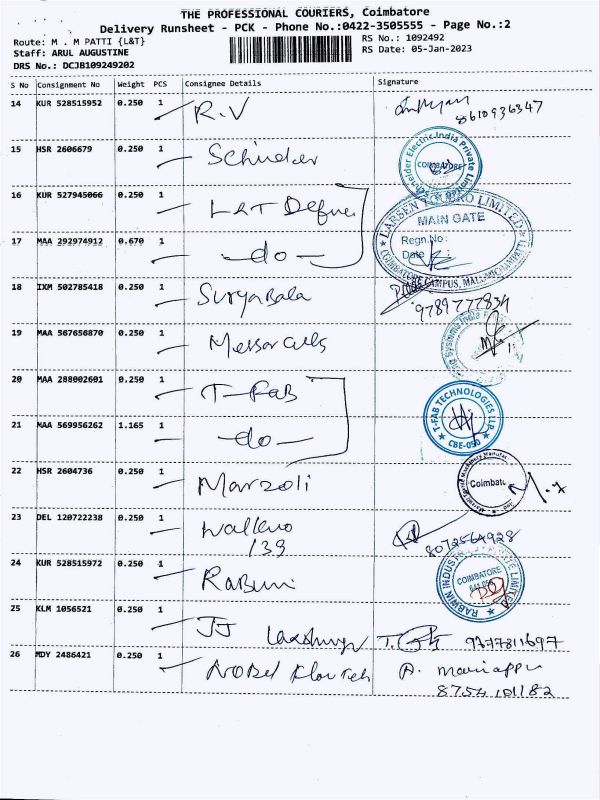 THE PROFESSIONAL COURIERS, Coimbatore
Delivery Runsheet - PCK - Phone No.:0422-3505555 - Page No.:2
Route: M . M PATTI {L&T} RS No.: 1092492
Staff: ARUL AUGUSTINE RS Date: 05-Jan-2023
DRS No.: DCJB109249202
S No Consignment No Weight PCS Consignee Details Signature
14 KUR 528515952 0.250 1 R.V 8610936347
15 HSR 2606679 0.250 1 Schinder
Schneider Electric India Private Limited
COIMBATORE
16 KUR 527945066 0.250 1 L&T
LARSEN & TOUBRO LIMITED
MAIN GATE
Regn.No:
17 MAA 292974912 0.670 1 -do-
Date :
COIMBATORE CAMPUS,
18 IXM 502785418 0.250 1 SuryaBala 9789777834
19 MAA 567656870 0.250 1
20 MAA 288002601 0.250 1 T-FAB
T-FAB TECHNOLOGIES LLP
21 MAA 569956262 1.165 1 -do-
CBE-050
22 HSR 2604736 0.250 1 Marzoli
Coimbatore
23 DEL 120722238 0.250 1
139 8072564928
24 KUR 528515972 0.250 1
RABWIN INDUSTRIES PRIVATE LIMITED
COIMBATORE
25 KLM 1056521 0.250 1 JJ 9377811697
26 MDY 2486421 0.250 1 Nobel A. mariappn
8754101182